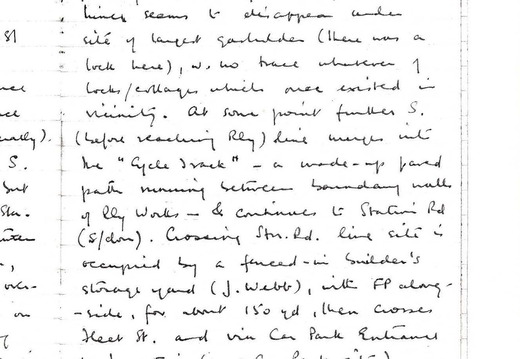 hence seems to disappear under
81
site of largest gasholder (there was a
lock here), w. no trace whatever of
locks/cottages which once existed in
vicinity. At some point further S.
(before reaching Rly) line merges into
the "Cycle Track" – a made-up paved
S.
path running between boundary walls
but
Stn.
of Rly Works – & continues to Station Rd
(S/don). Crossing Stn. Rd. line site is
occupied by a fenced-in builder's
storage yard (J. Webb), with FP along-
on
-side, for about 150 yd, then crosses
Fleet St. and via Car Park Entrance